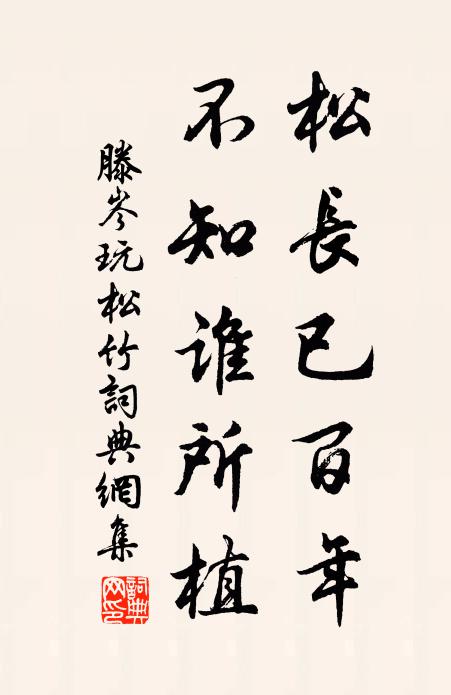 松長已百年
不知誰所植
滕岑玩松竹詞典網集
詞典網印